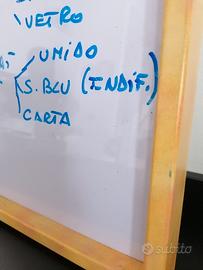 VETRO
UMIDO
S. BLU (INDIF.)
CARTA
subito